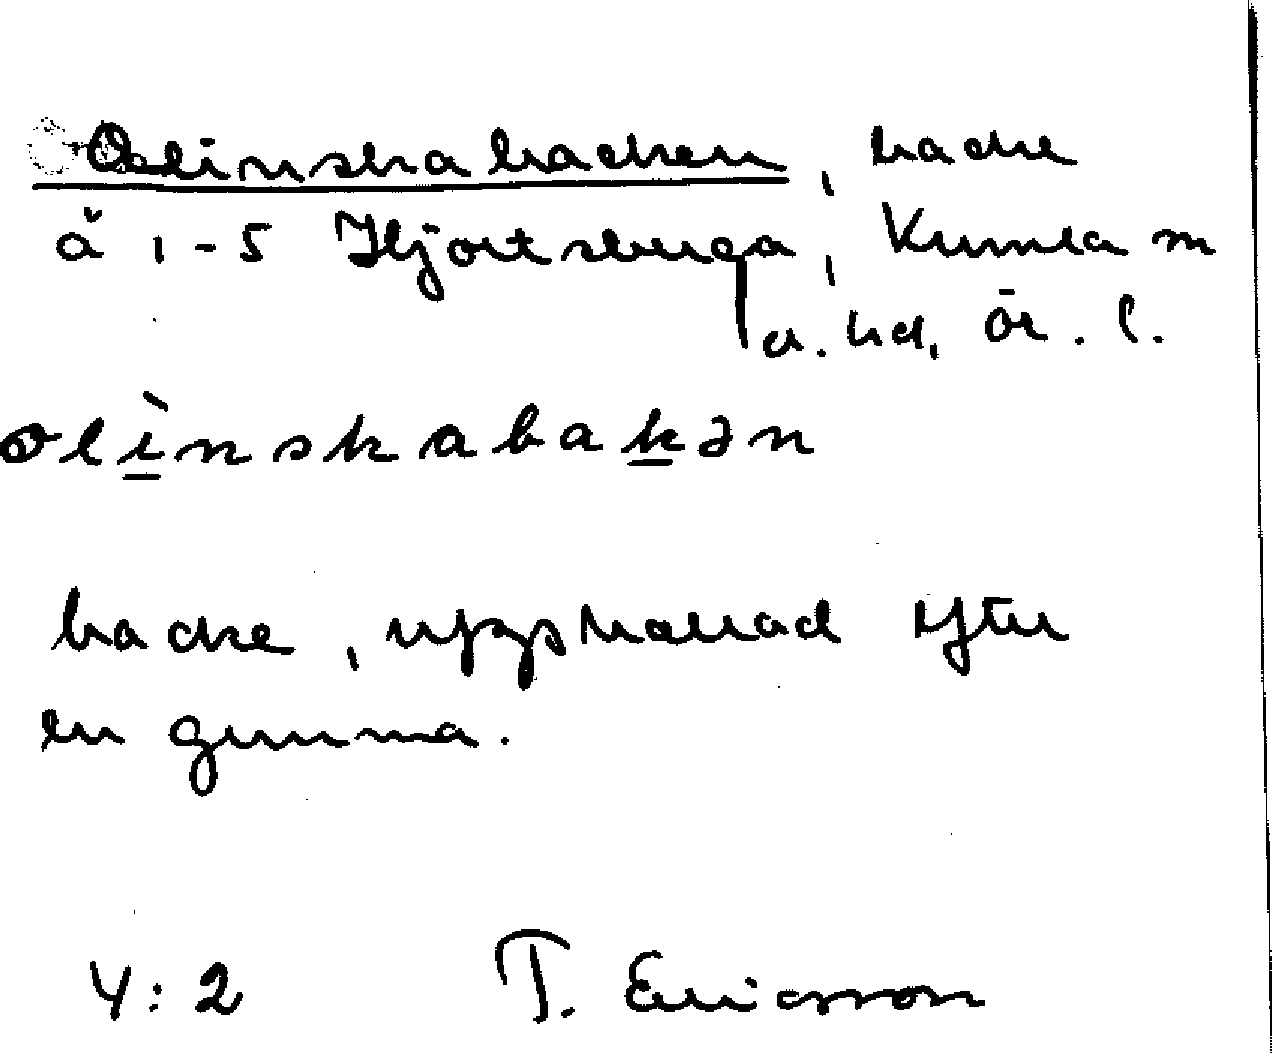 Olinskabacken, backe
å 1-5 Hjortsberga, Kumla sn
o. hd, Ör. l.
olìnskabakən
backe, uppkallad efter
en gumma.
4:2 T. Ericsson